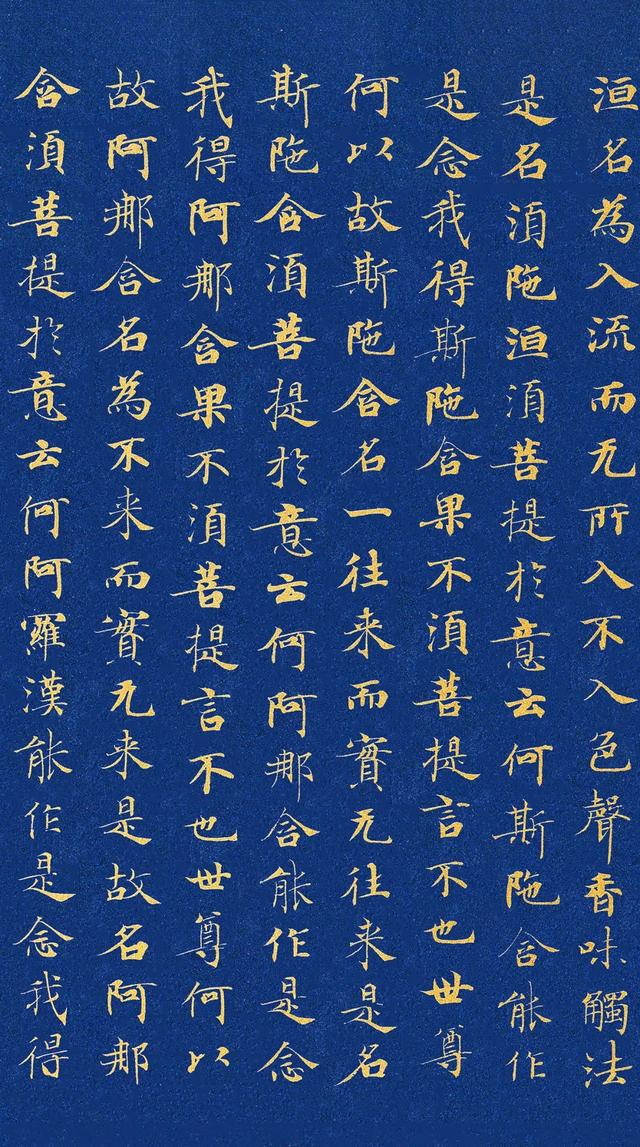 洹名為入流而无所入不入色聲香味觸法
是名湏陁洹湏菩提扵意云何斯陁含能作
是念我得斯陁含果不湏菩提言不也世尊
何以故斯陁含名一往来而實无往来是名
斯陁含湏菩提扵意云何阿那含能作是念
我得阿那含果不湏菩提言不也世尊何以
故阿那含名為不来而實无来是故名阿那
含湏菩提扵意云何阿羅漢能作是念我得